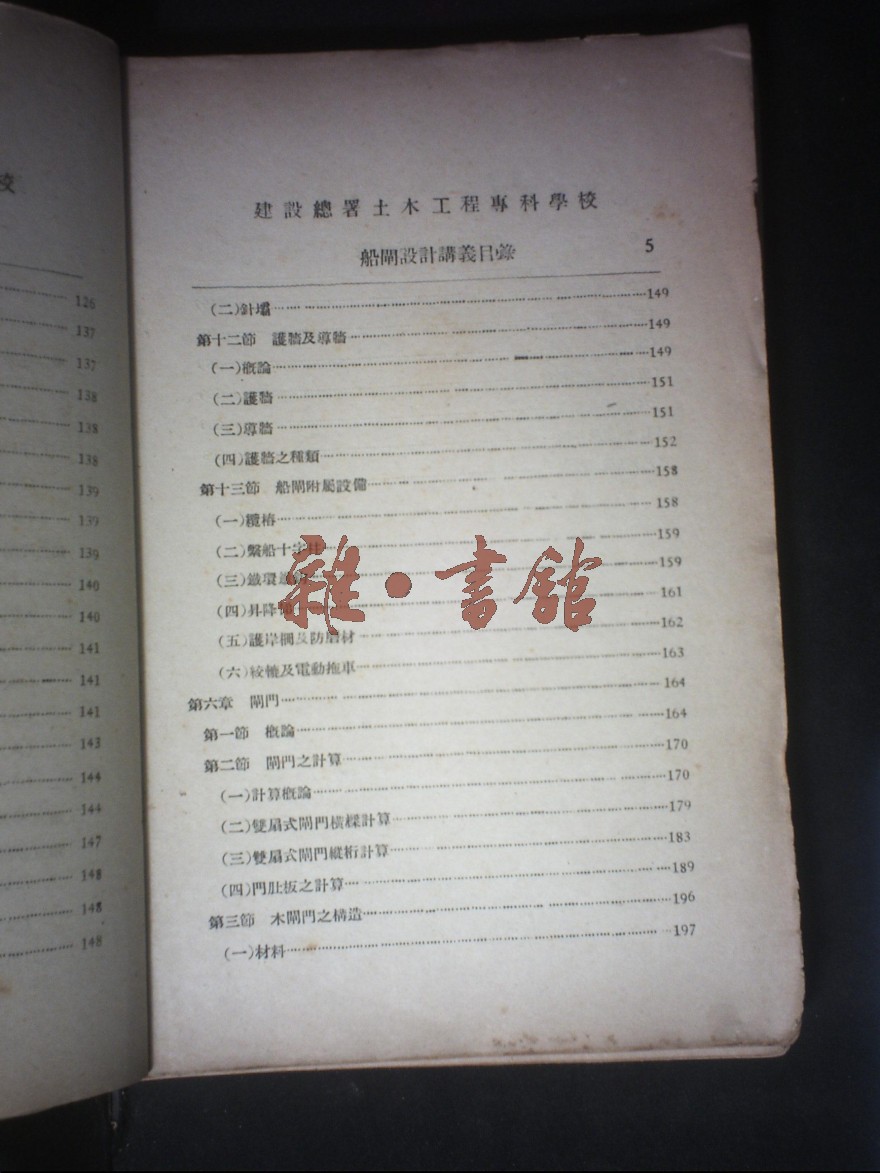 校
126
137
137
138
138
138
139
139
139
140
140
141
141
141
143
144
144
147
148
148
148
建設總署土木工程專科學校
船閘設計講義目錄 5
(二)針壩 149
第十二節 護牆及導牆 149
(一)概論 149
(二)護牆 151
(三)導牆 151
(四)護牆之種類 152
第十三節 船閘附屬設備 158
(一)纜樁 158
(二)繫船十字 159
(三)鐵環 159
(四)昇降 161
(五)護岸欄及防磨材 162
(六)絞轆及電動拖車 163
第六章 閘門 164
第一節 概論 164
第二節 閘門之計算 170
(一)計算概論 170
(二)雙扇式閘門橫樑計算 179
(三)雙扇式閘門縱桁計算 183
(四)門肚板之計算 189
第三節 木閘門之構造 196
(一)材料 197
雜·書館